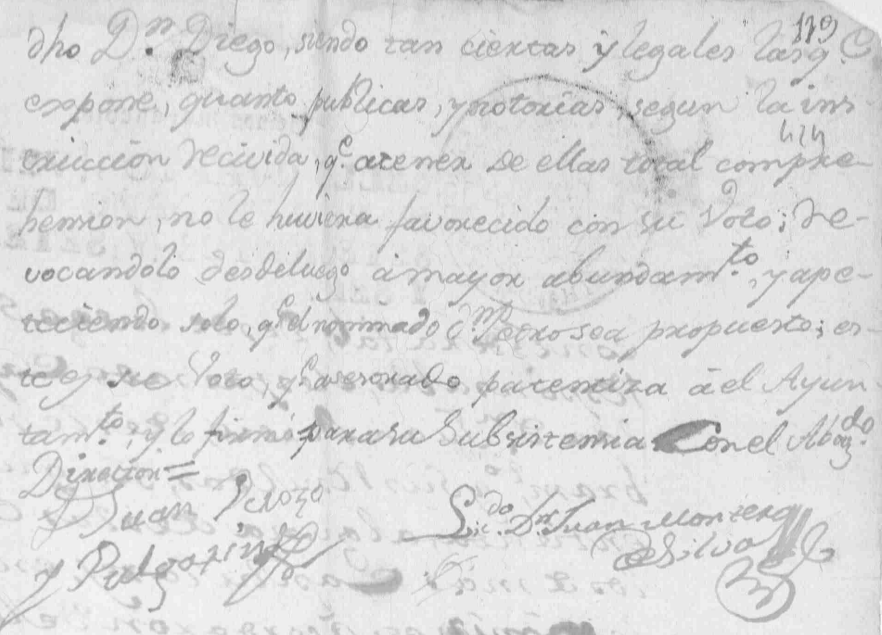 119
dho Dn. Diego, siendo tan ciertas y legales las q.
expone, quanto publicas, y notorias, segun la ins-
424
truccion recivida, q.e a tener de ellas total compre-
hension, no le huviera favorecido con su Voto; re-
vocandolo desde luego à mayor abundam.to, y ape-
teciendo solo, q.e el nominado Dn. Pedro sea propuesto; es-
te es su Voto, q.e asesorado patentiza à el Ayun-
tam.to, y lo firmó para su Subsistencia Con el Abog.do
Director=
Juan
y Pulgarin
Lic.do Dn. Juan Montero
de Silva